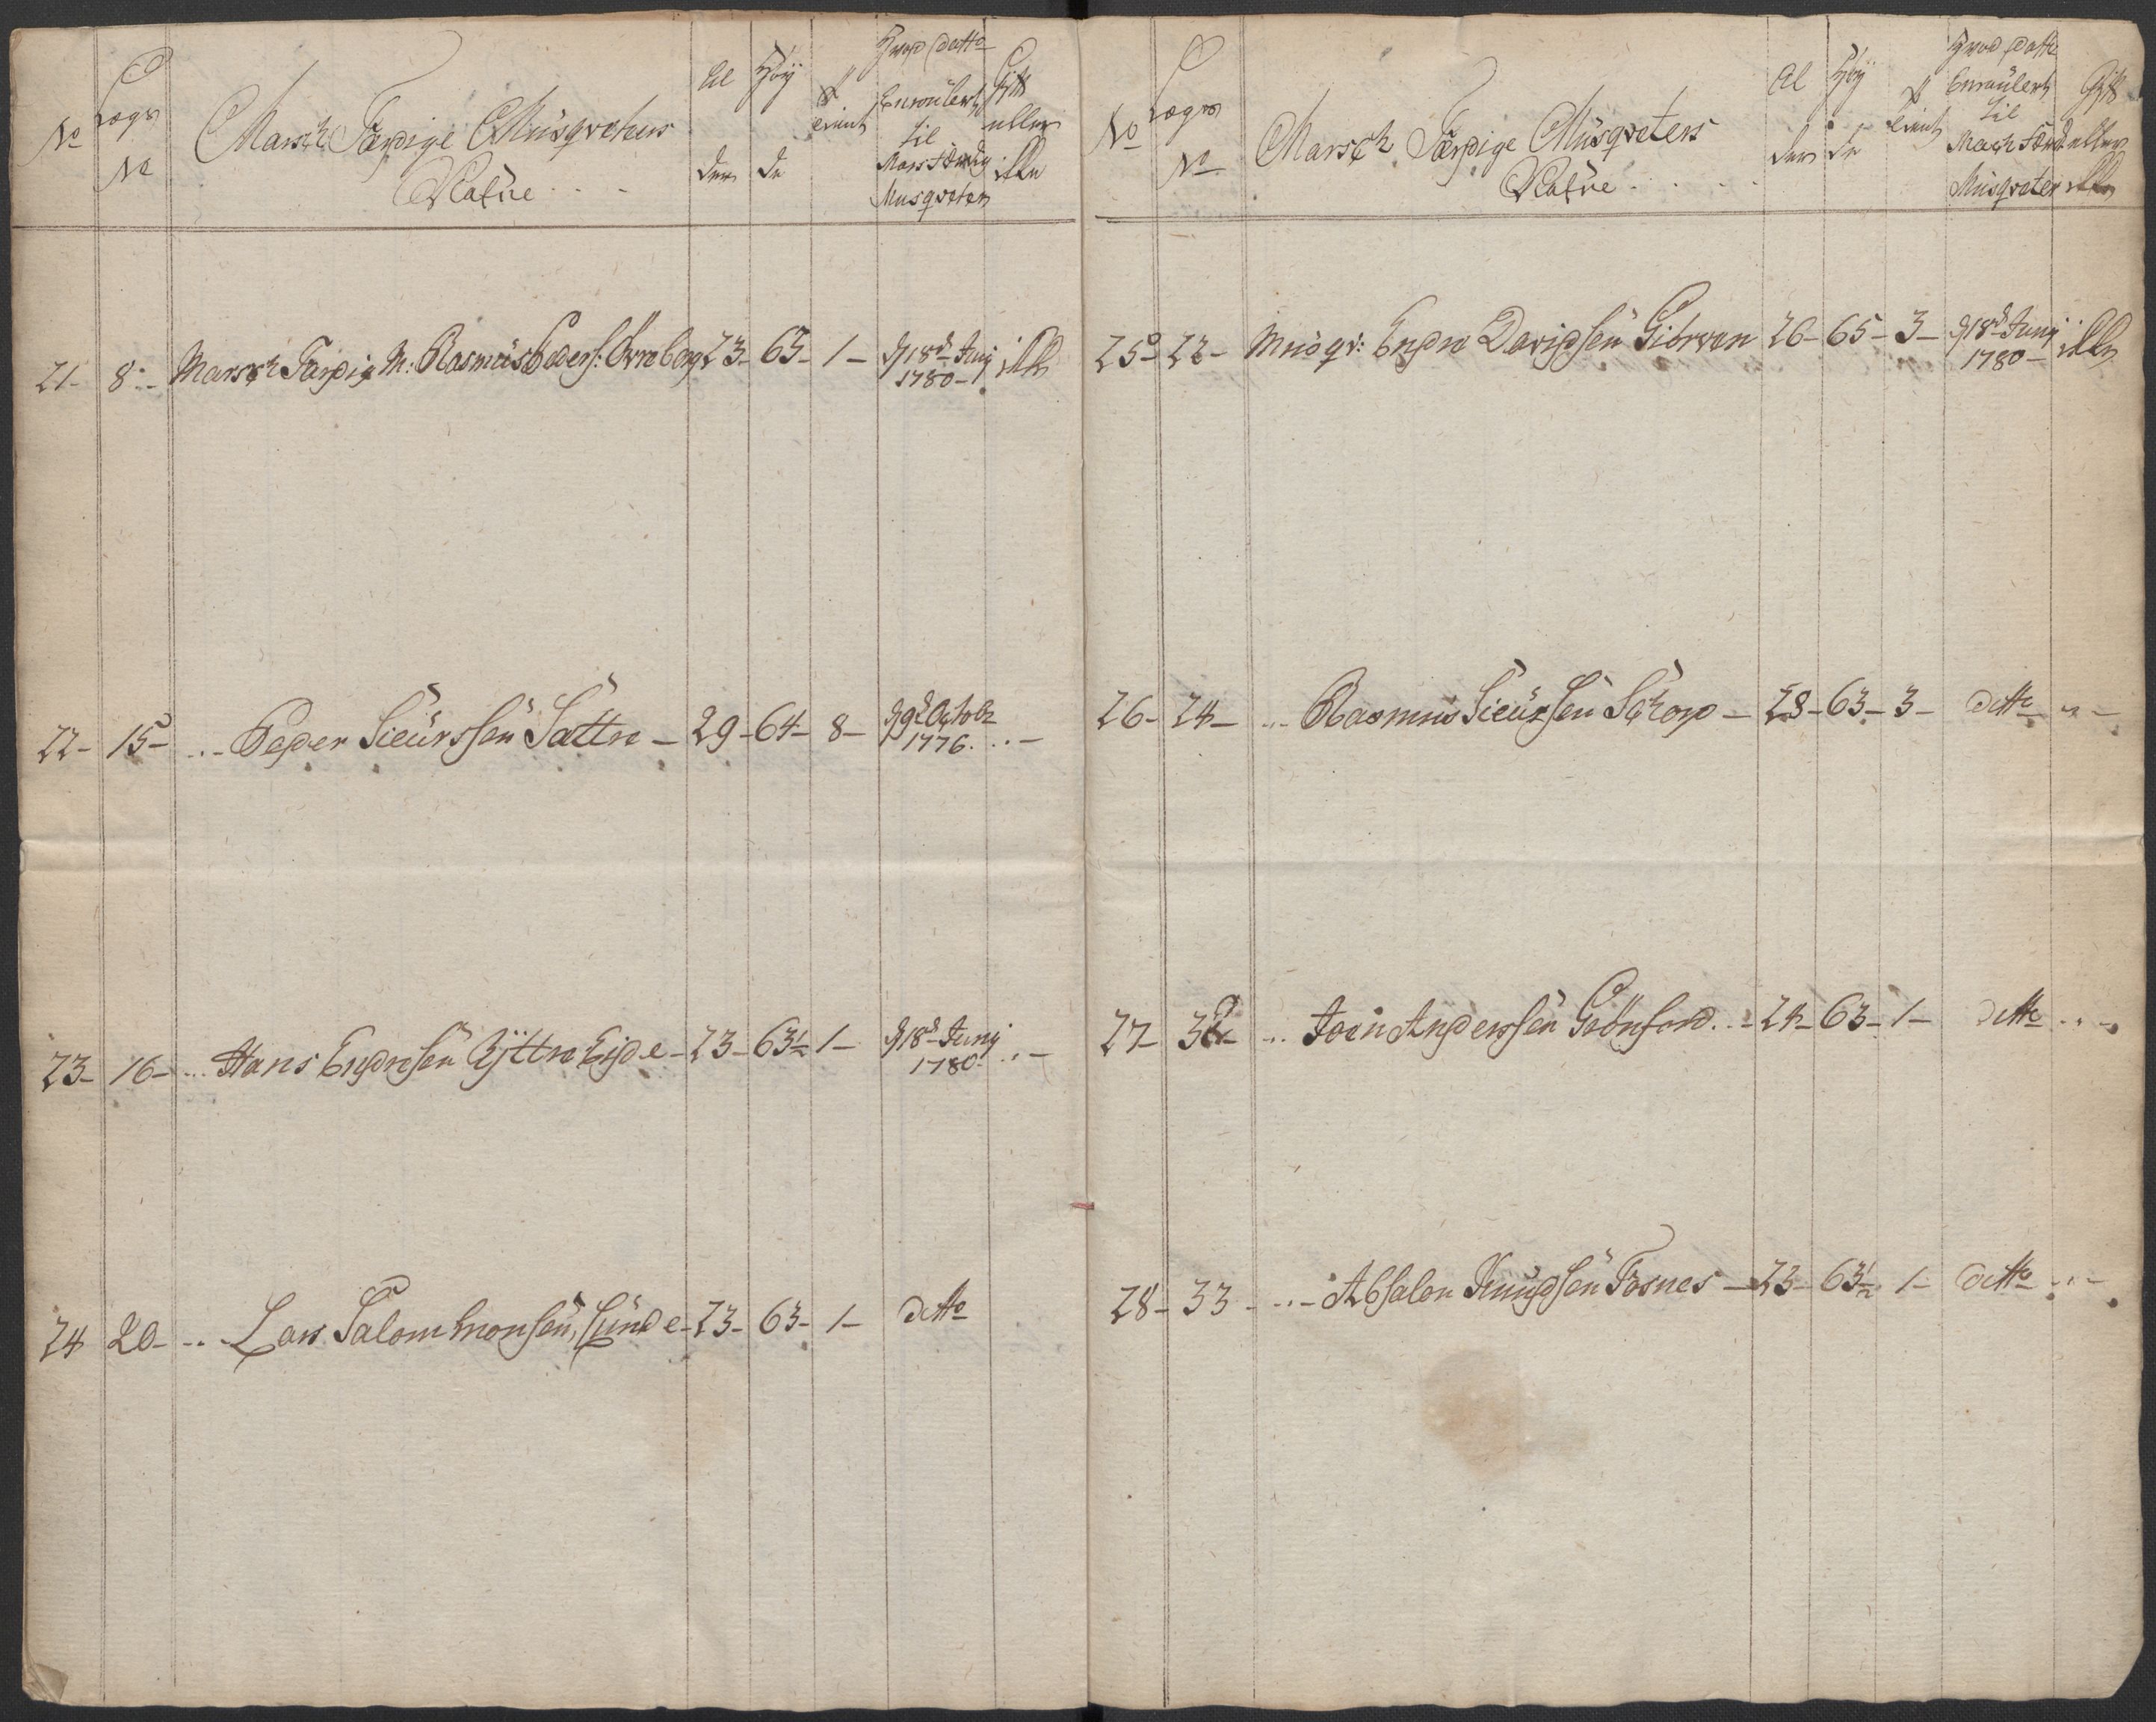 No
Lægs
No
Marsch Færdige Musqveteers
Nafne
Al
der
Høy
de
Tient
Hvad Datto
Enroulert
til
Mars Færdig
Musqveter
Gift
eller
ikke
21- 8- Marsch Færdig M: Rasmus Peders: Øvreberg 23- 63- 1- d 18d Junj ikke
1780-
22- 15- ... Peder Sieurssen Sættre - 29- 64- 8- d 9d Octobr
1776. ... -
23- 16- ... Hans Endresen Yttre Eide - 23- 63½ 1- d 18d Junj
1780. ... -
24 20- ... Lars Salommonsen, Lunde - 23- 63- 1- ditto
No
Lægs
No
Marsch Færdige Musqveters
Nafne
Al
der
Høy
de
Tient
Hvad Datto
Enroulert
til
Mach Færd
Musqveter
Gift
eller
ikke
25- 22- Musqv: Endre Davidsen 26- 65- 3- d 18d Junj ikke
1780-
26- 24- ... Rasmus Sieursen - 28- 63- 3- ditto " -
27- ... Joen Anderssen - 24- 63- 1- ditto ... -
28- 33- ... Absalon Knudsen Fosnes - 23- 63½ 1- ditto ... -